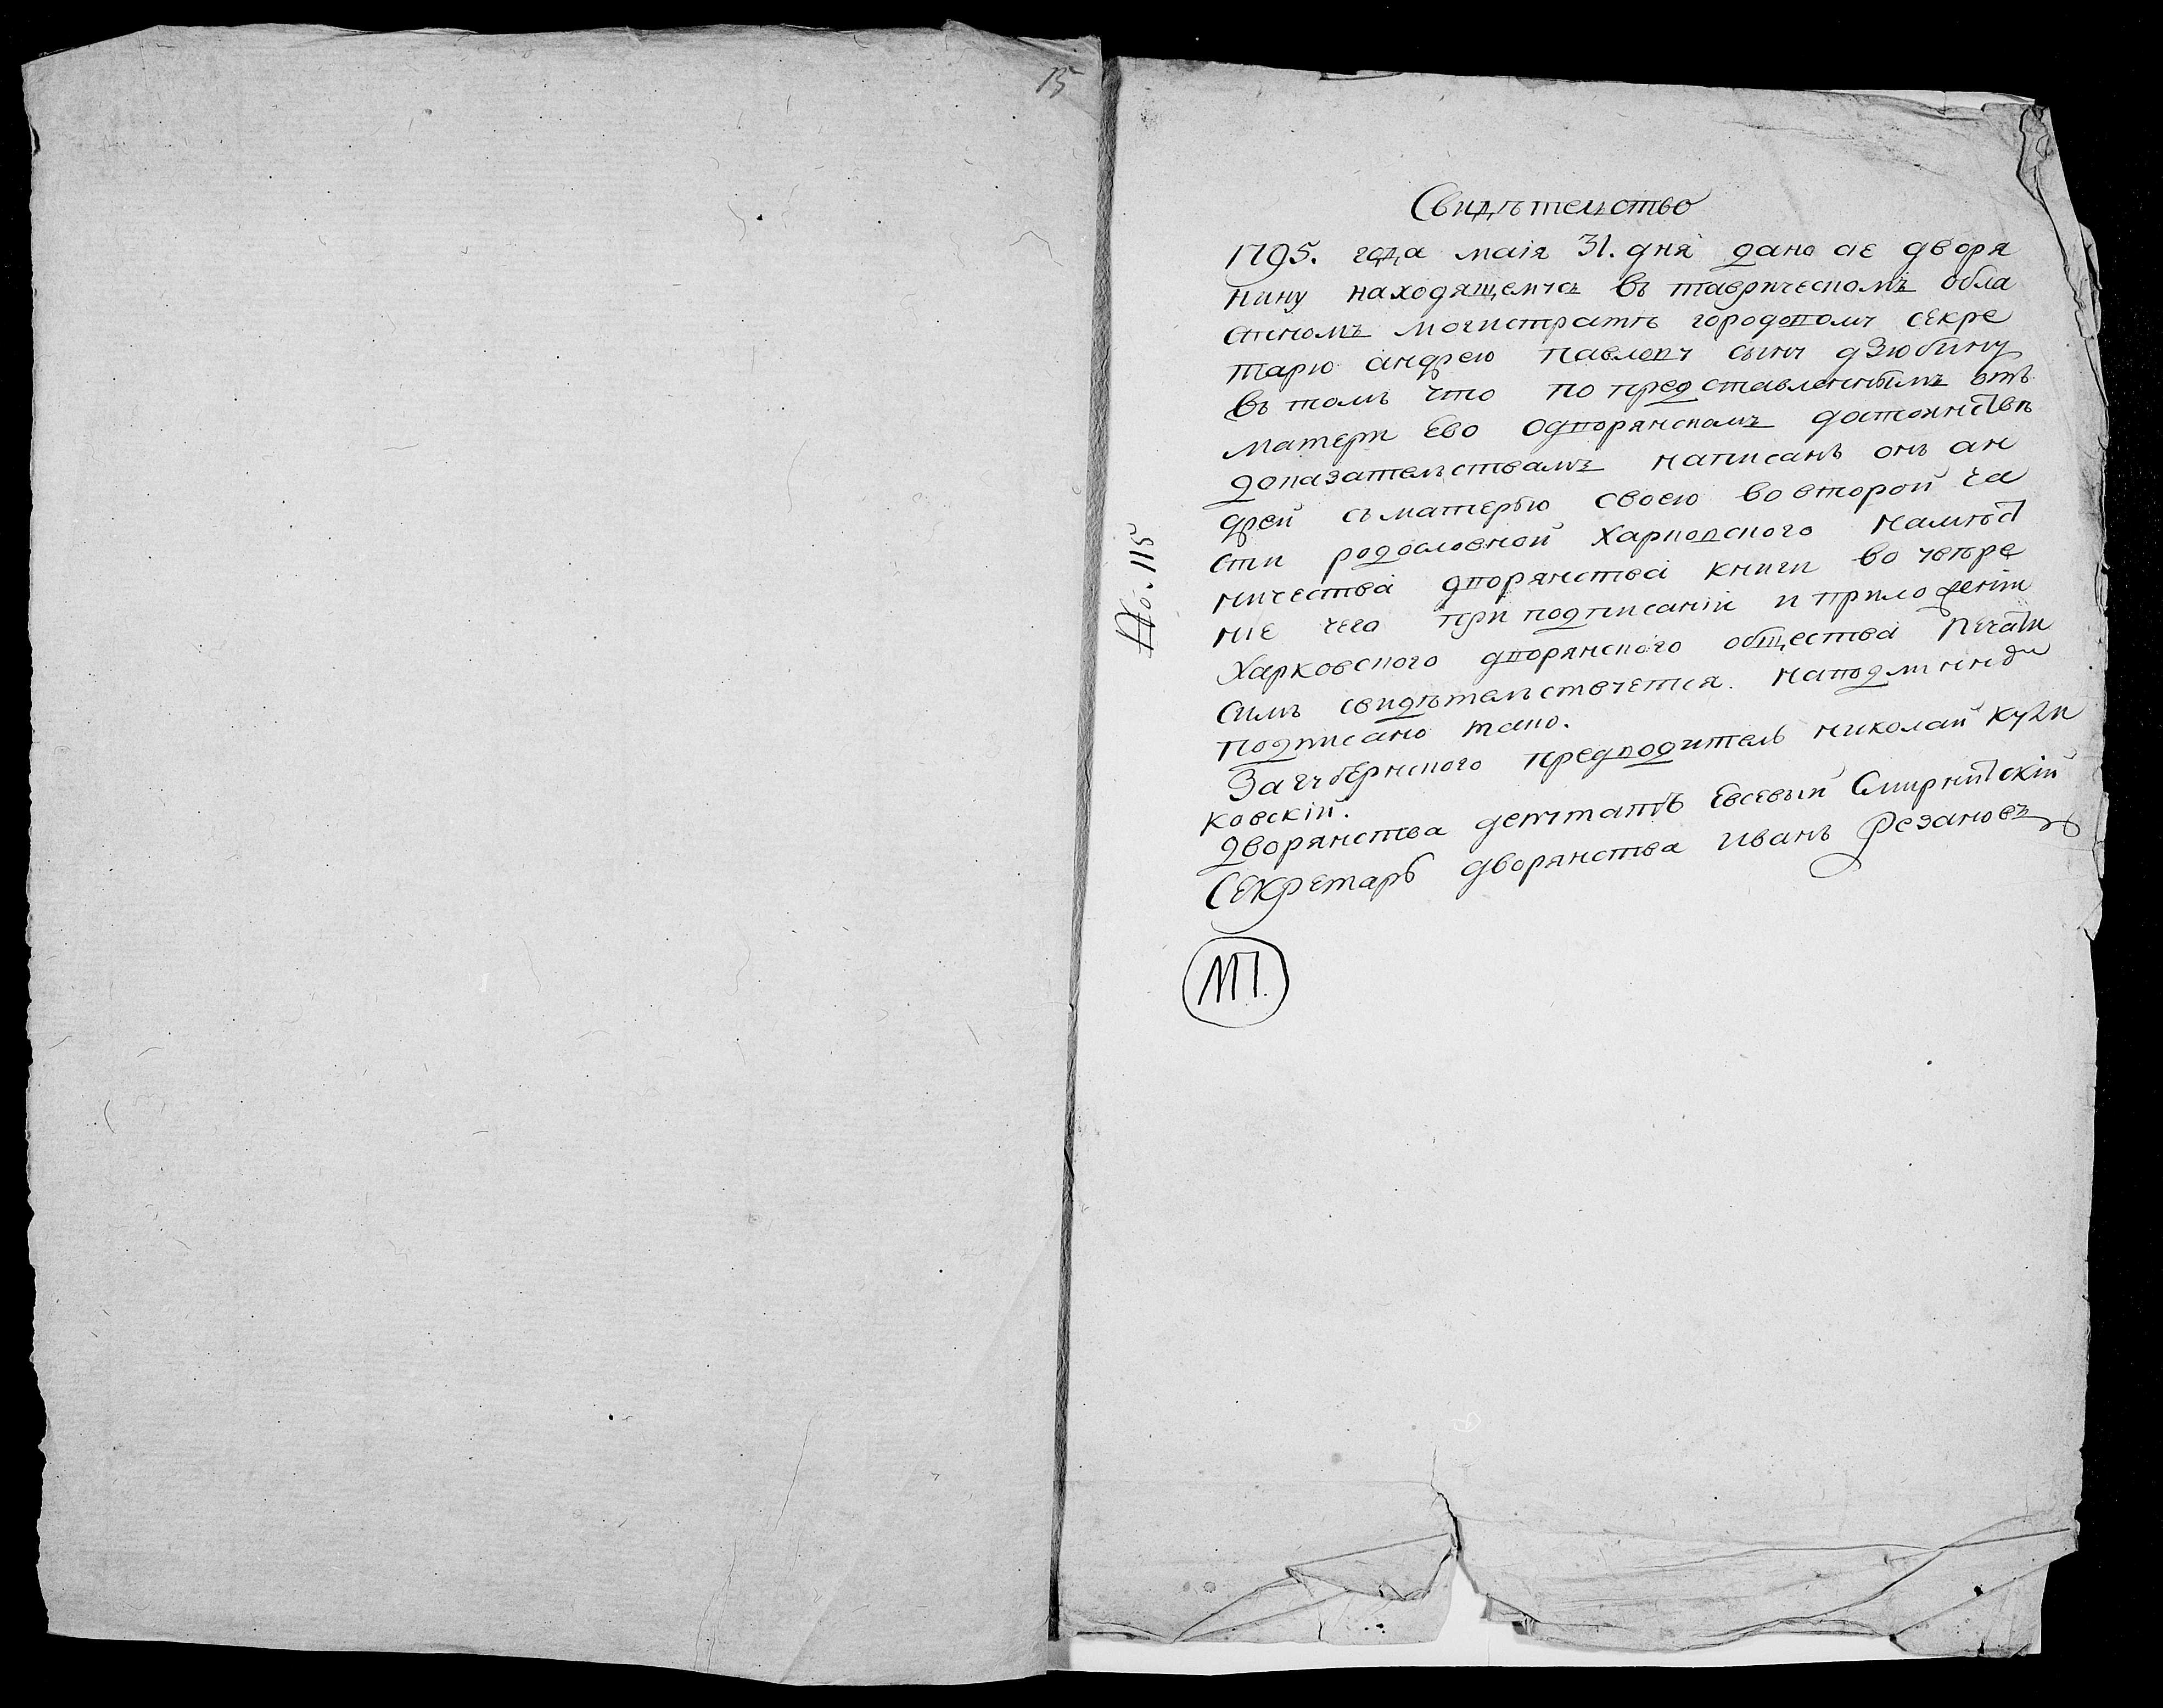 15
Свидѣтельство
1795. года маія 31. дня дано сіе дворя
нину находящемуся въ таврическомъ обла
стномъ могистратѣ городовому секре
тарю андрею павлову сыну дзюбину
въ томъ что по представленнымъ отъ
матери Ево о дворянскомъ достоинствѣ
доказательствамъ написанъ онъ ан
дрей съ матерью своею во второй ча
сти родословной Харковского намѣст
ничества дворянства книги во увѣре
ніе чего при подписаніи и приложеніи
Харковского дворянского общества печати
симъ свидѣтельствуется. На подлинно
подписано тако.
За губернского предводитель николай Кули
ковскій.
дворянства депутатъ Евсевый Смирнитскій
Секретарь дворянства иванъ Резановъ
М.П.
№. 115